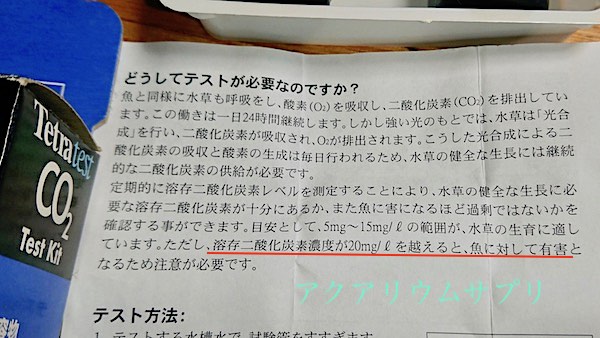 どうしてテストが必要なのですか?
魚と同様に水草も呼吸をし、酸素(O₂)を吸収し、二酸化炭素(CO₂)を排出してい
ます。この働きは一日24時間継続します。しかし強い光のもとでは、水草は「光合
成」を行い、二酸化炭素が吸収され、O₂が排出されます。こうした光合成による二
酸化炭素の吸収と酸素の生成は毎日行われるため、水草の健全な生長には継続
的な二酸化炭素の供給が必要です。
定期的に溶存二酸化炭素レベルを測定することにより、水草の健全な生長に必
要な溶存二酸化炭素が十分にあるか、また魚に害になるほど過剰ではないかを
確認する事ができます。目安として、5mg〜15mg/ℓの範囲が、水草の生育に適し
ています。ただし、溶存二酸化炭素濃度が20mg/ℓを越えると、魚に対して有害と
なるため注意が必要です。
アクアリウムサプリ
テスト方法:
1. テストする水槽水で、試験管をすすぎます
Tetratest
CO₂
Test Kit